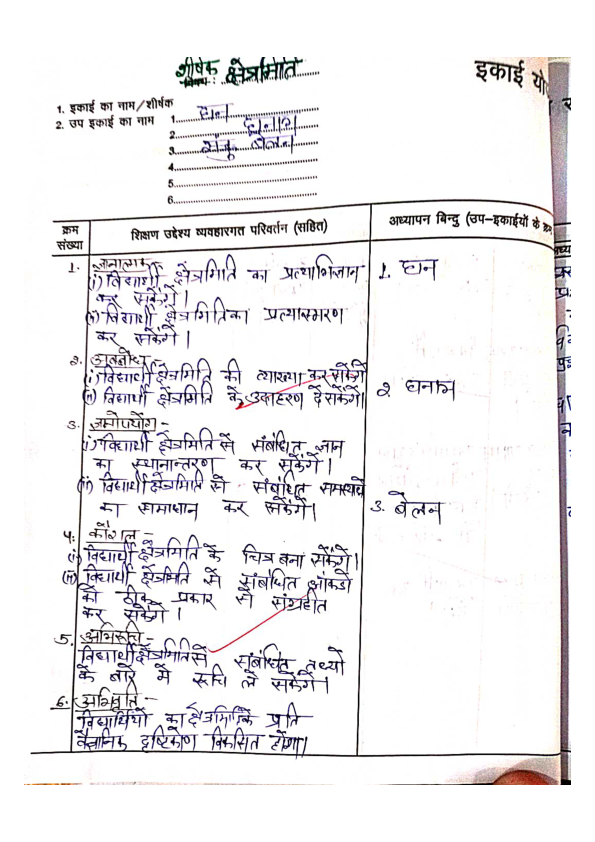 शीर्षक क्षेत्रमिति
इकाई यो
1. इकाई का नाम/शीर्षक
2. उप इकाई का नाम
1. घन
2. घनाभ
3. बेलन
4.
5.
6.
क्रम संख्या
शिक्षण उद्देश्य व्यवहारगत परिवर्तन (सहित)
अध्यापन बिन्दु (उप-इकाईयों के क्रम
1. ज्ञानात्मक
(i) विद्यार्थी क्षेत्रमिति का प्रत्याभिज्ञान
कर सकेंगे।
(ii) विद्यार्थी क्षेत्रमिति का प्रत्यास्मरण
कर सकेंगे।
2. अवबोध -
(i) विद्यार्थी क्षेत्रमिति की व्याख्या कर सकेंगे
(ii) विद्यार्थी क्षेत्रमिति के उदाहरण दे सकेंगे।
3. ज्ञानोपयोग -
(i) विद्यार्थी क्षेत्रमिति से संबंधित ज्ञान
का स्थानान्तरण कर सकेंगे।
(ii) विद्यार्थी क्षेत्रमिति से संबंधित
का समाधान कर सकेंगे।
4. कौशल -
(i) विद्यार्थी क्षेत्रमिति के चित्र बना सकेंगे।
(ii) विद्यार्थी क्षेत्रमिति से संबंधित आंकडो
को ठीक प्रकार से संग्रहीत
कर सकेंगे।
5. अभिरूचि -
विद्यार्थी क्षेत्रमिति से संबंधित तथ्यो
के बारे में रूचि ले सकेंगे।
6. अभिवृति -
विद्यार्थियों का क्षेत्रमिति के प्रति
वैज्ञानिक दृष्टिकोण विकसित होगा।
1. घन
2 घनाभ
3. बेलन